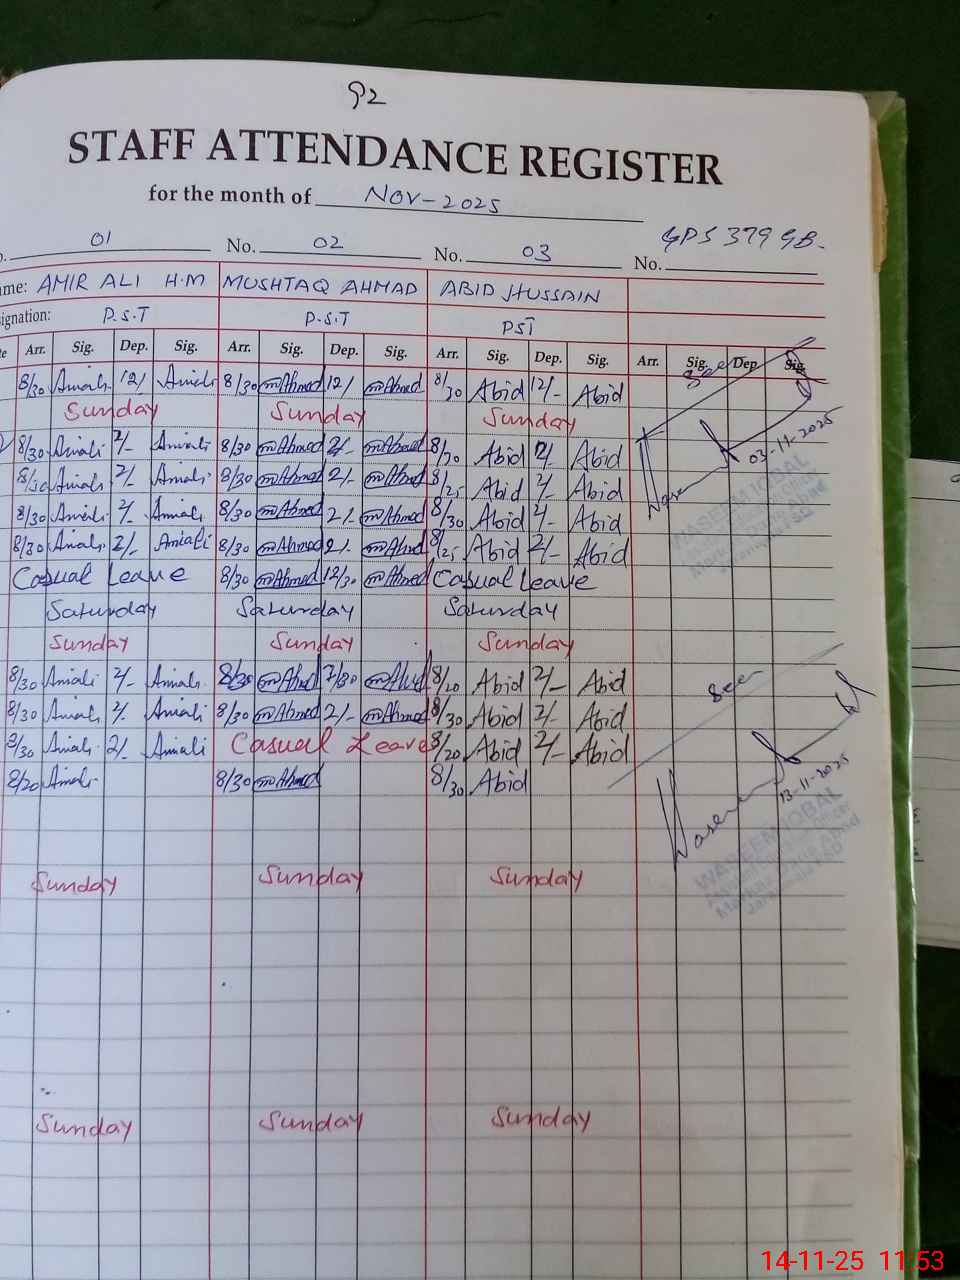 92
STAFF ATTENDANCE REGISTER
for the month of NOV-2025
GPS 379 GB.
01 No. 02 No. 03 No.
ame: AMIR ALI H.M MUSHTAQ AHMAD ABID HUSSAIN
signation: P.S.T P.S.T PST
Arr. Sig. Dep. Sig. Arr. Sig. Dep. Sig. Arr. Sig. Dep. Sig. Arr. Sig. Dep Sig.
seen
8/30 Amiali 12/ Amiali 8/30 Ahmed 12/ Ahmed 8/30 Abid 12/- Abid
Sunday Sunday Sunday
8/30 Amiali 2/- Amiali 8/30 Ahmed 2/- Ahmed 8/20 Abid 2/- Abid
03-11-2025
8/30 Amiali 2/- Amiali 8/30 Ahmed 2/- Ahmed 8/25 Abid 2/- Abid
Waseem
WASEEM IQBAL
8/30 Amiali 2/- Amiali 8/30 Ahmed 2/- Ahmed 8/30 Abid 2/- Abid
8/30 Amiali 2/- Amiali 8/30 Ahmed 2/- Ahmed 8/25 Abid 2/- Abid
Casual Leave 8/30 Ahmed 12/30 Ahmed Casual Leave
Saturday Saturday Saturday
Sunday Sunday Sunday
8/30 Amiali 2/- Amiali 8/30 Ahmed 2/30 Ahmed 8/20 Abid 2/- Abid
seen
8/30 Amiali 2/- Amiali 8/30 Ahmed 2/- Ahmed 8/30 Abid 2/- Abid
8/30 Amiali 2/- Amiali Casual Leave 8/20 Abid 2/- Abid
8/20 Amiali 8/30 Ahmed 8/30 Abid
13-11-2025
Waseem
WASEEM IQBAL
Sunday Sunday Sunday
Sunday Sunday Sunday
14-11-25 11:53